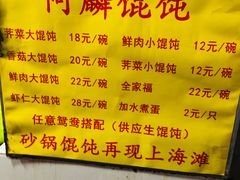 阿麟馄饨
荠菜大馄饨 18元/碗 鲜肉小馄饨 12元/碗
香菇大馄饨 20元/碗 荠菜小馄饨 12元/碗
鲜肉大馄饨 22元/碗 全家福 22元/碗
虾仁大馄饨 28元/碗 加水煮蛋 2元/只
任意鸳鸯搭配（供应生馄饨）
砂锅馄饨再现上海滩